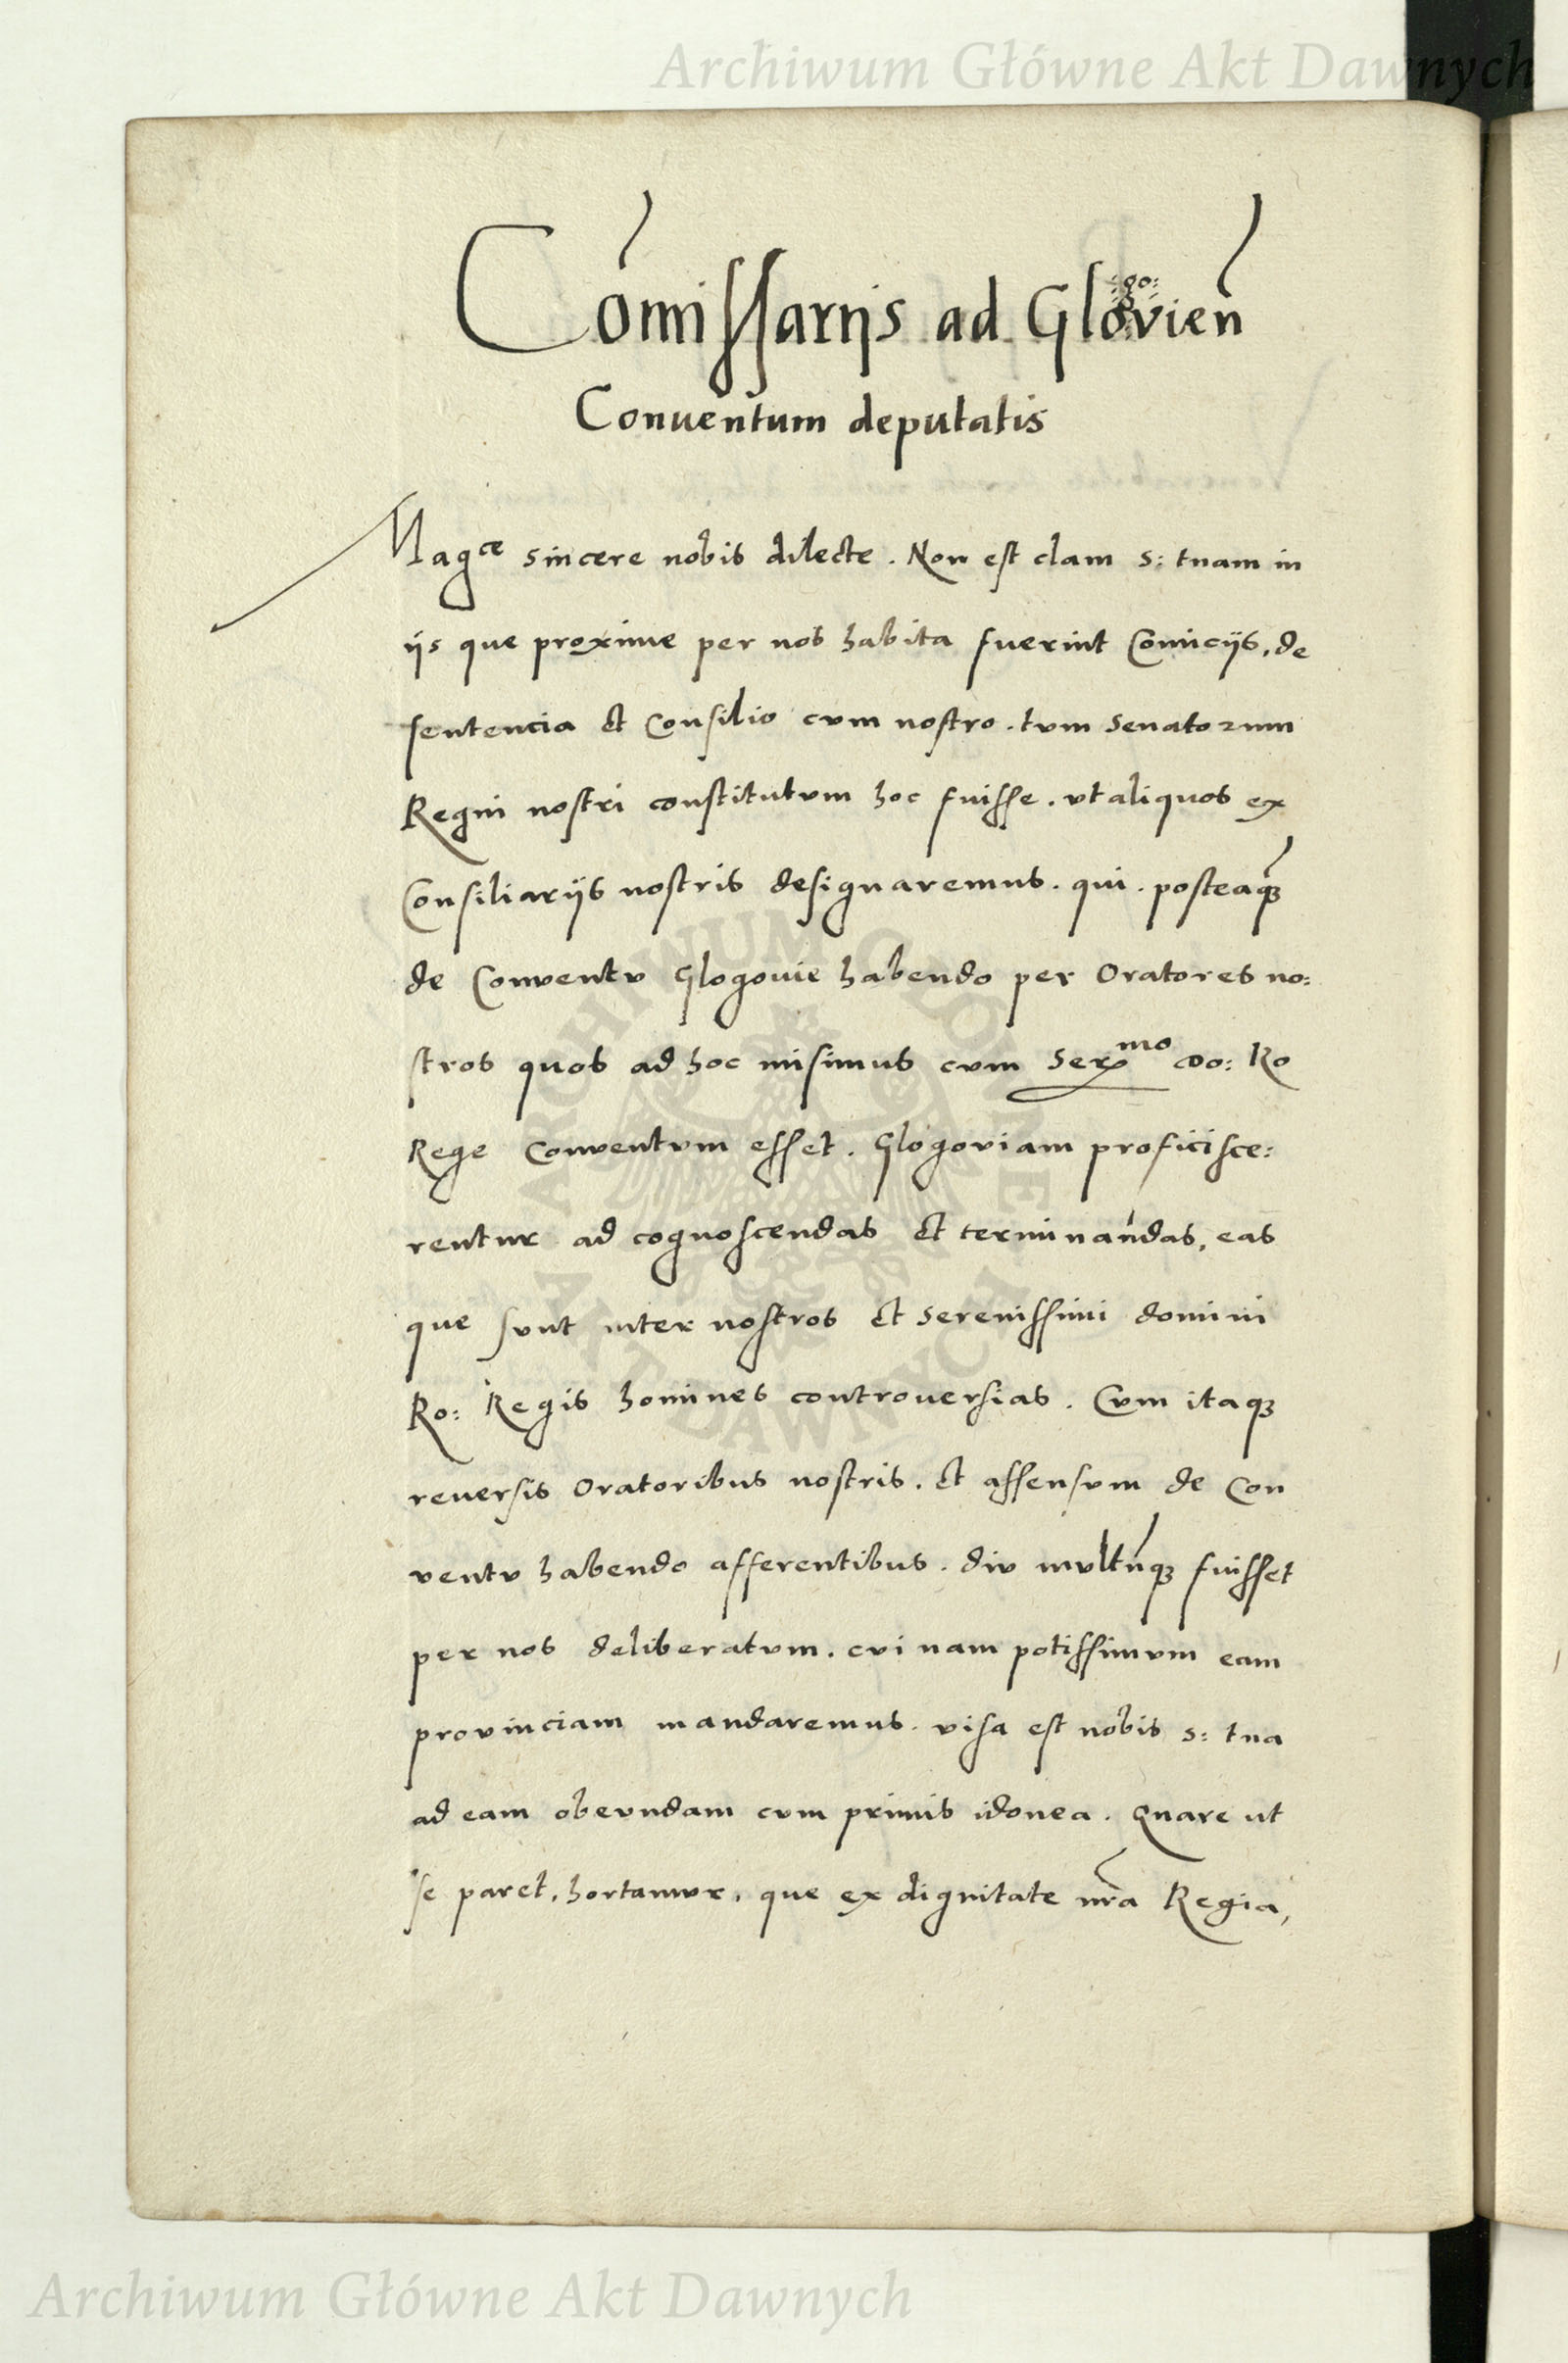 Archiwum Główne Akt Dawnych
Com̄issarijs ad Glo:go:vien̄
Conuentum deputatis
Mag^ce sincere nobis dilecte. Non est clam s: tuam in
ijs que proxime per nos habita fuerint Comicijs, de
sentencia et Consilio cvm nostro. tvm Senatorum
Regni nostri constitutvm hoc fuisse. vt aliquos ex
Consiliarijs nostris designaremus. qui. posteaq̃ꝫ
de Conventv Glogouie habendo per Oratores no:
stros quos ad hoc misimus cvm Ser^mo Do: Ro
Rege Conventvm esset. Glogoviam proficisce:
rentur ad cognoscendas et terminan̄das, eas
que svnt inter nostros et Serenissimi domini
Ro: Regis homines controuersias. Cvm itaqꝫ
reuersis Oratoribus nostris. et assensvm de Con
ventv habendo afferentibus. div mvltūqꝫ fuisset
per nos deliberatvm. cvi nam potissimvm eam
provinciam mandaremus. visa est nobis s: tua
ad eam obevndam cvm primis idonea. Quare ut
se paret, hortamvr, que ex dignitate nr̃a Regia,
ARCHIWUM GŁÓWNE
AKT DAWNYCH
Archiwum Główne Akt Dawnych